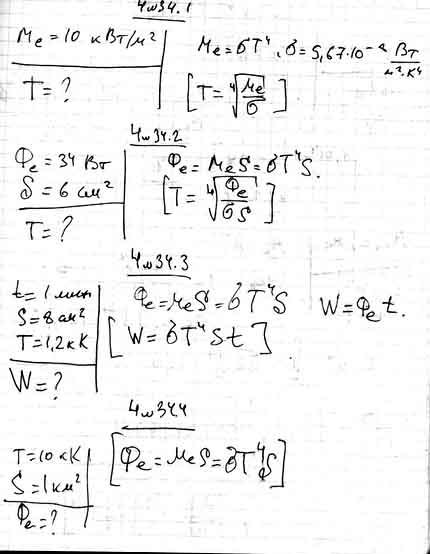 Чи34.1
Me = 10 кВт/м²
T = ?
Me = σT⁴, σ = 5,67·10⁻⁸ Вт/м²·К⁴
[T = ⁴√(Me/σ)]
Чи34.2
Фe = 34 Вт
S = 6 см²
T = ?
Фe = MeS = σT⁴S.
[T = ⁴√(Фe/σS)]
Чи34.3
t = 1 мин
S = 8 см²
T = 1,2 кК
W = ?
Фe = MeS = σT⁴S W = Фe t.
[W = σT⁴St]
Чи34.4
T = 10 кК
S = 1 км²
Фe = ?
[Фe = MeS = σT⁴S]